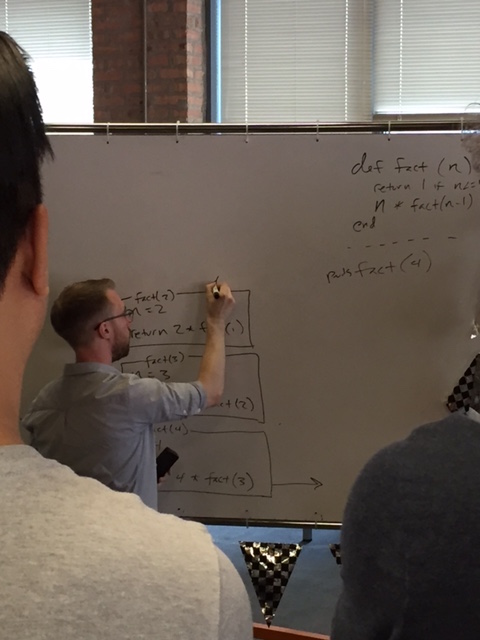 def fact (n)
return 1 if n<=
n * fact(n-1)
end
puts fact(4)
fact(2)
n = 2
return 2 * f (1)
fact(3)
n = 3
act(2)
act(4)
4 * fact(3)